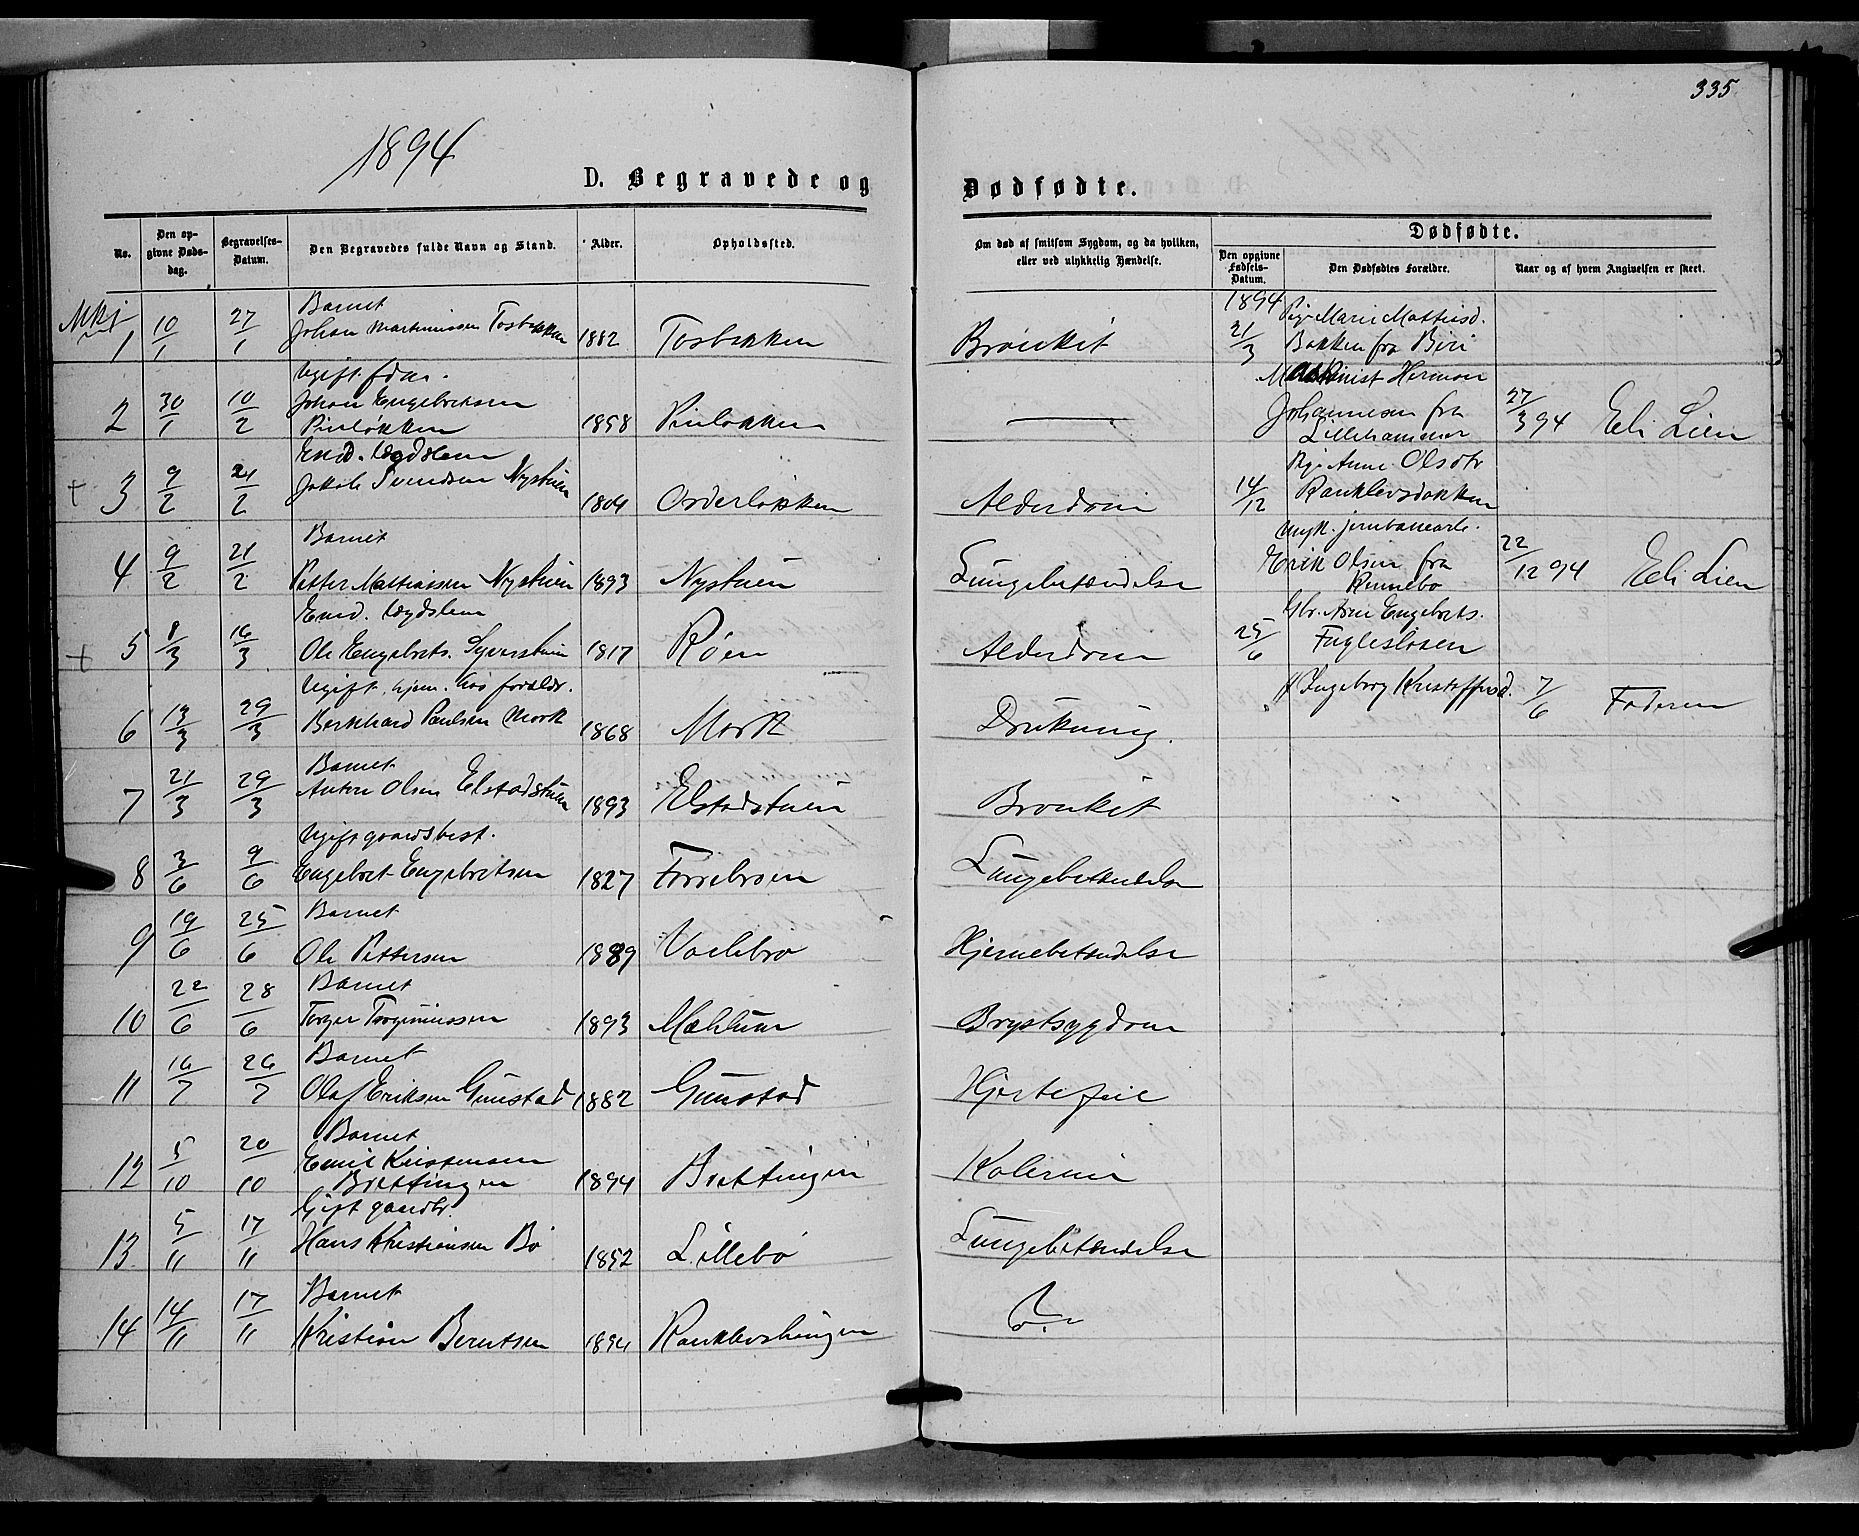 335
1894
D. Begravede og Dødfødte.
No.
Den opgivne Dødsdag.
Begravelses-Datum.
Den Begravedes fulde Navn og Stand.
Alder.
Opholdssted.
Om død af smitsom Sygdom, og da hvilken, eller ved ulykkelig Hændelse.
Dødfødte.
Den opgivne Fødsels-Datum.
Den Dødfødtes Forældre.
Naar og af hvem Angivelsen er skeet.
1 10/1 27/1 Barnet
Johan Martiniussen Tosbakken 1882 Tosbakken Bronkit
2 30/1 10/2 Ugift
Johan Engebretsen 1858
3 9/2 21/2 Enkd. Lægdslem
Jakob Svendsen Nystuen 1804 Alderdom
4 9/2 21/2 Barnet
Petter Mattiassen Nystuen 1893 Nystuen Lungebetændelse
5 8/3 16/3 Enkd. Lægdslem
Ole Engebrets. Syverstuen 1817 Røen Alderdom
6 13/3 29/3 Ugift, hjem. hos forældr.
Bernhard Paulsen Mork 1868 Mork Drukning.
7 21/3 29/3 Barnet
Anton Olsen Elstadstuen 1893 Elstadstuen Bronkit
8 3/6 9/6 Ugift gaardbest.
Engebret Engebretsen 1827 Lungebetændelse
9 19/6 25/6 Barnet
Ole Pettersen 1889 Hjernebetændelse
10 22/6 28/6 Barnet
Torger 1893 Mæhlum Brystsygdom
11 16/7 26/7 Barnet
Olaf Eriksen Gunstad 1882 Gunstad Hjertefeil
12 5/10 20/10 Barnet
Emil Kristensen
Brettingen 1894 Brettingen Kolerin
13 5/11 17/11 Gift gaardbr.
Hans Kristiansen Bø 1852 Lillebø Lungebetændelse
14 14/11 17/11 Barnet
Kristian Berntsen 1894 Ranklevshaugen ?
1894
21/3 Pige Marie Mattiasd.
Bakken fra Biri
Maskinist Herman
Johannesen fra
Lillehammer 27/3 94 Eli Lien
14/12 Pige Anne Olsdtr
Ranklevsbakken
jernbanearb.
Erik Olsen fra
Rennebo 22/12 94 Eli Lien
25/6 Gbr. Arne Engebrets.
Fugleslosen
H. Ingeborg Kristoffersd. 7/6 Faderen